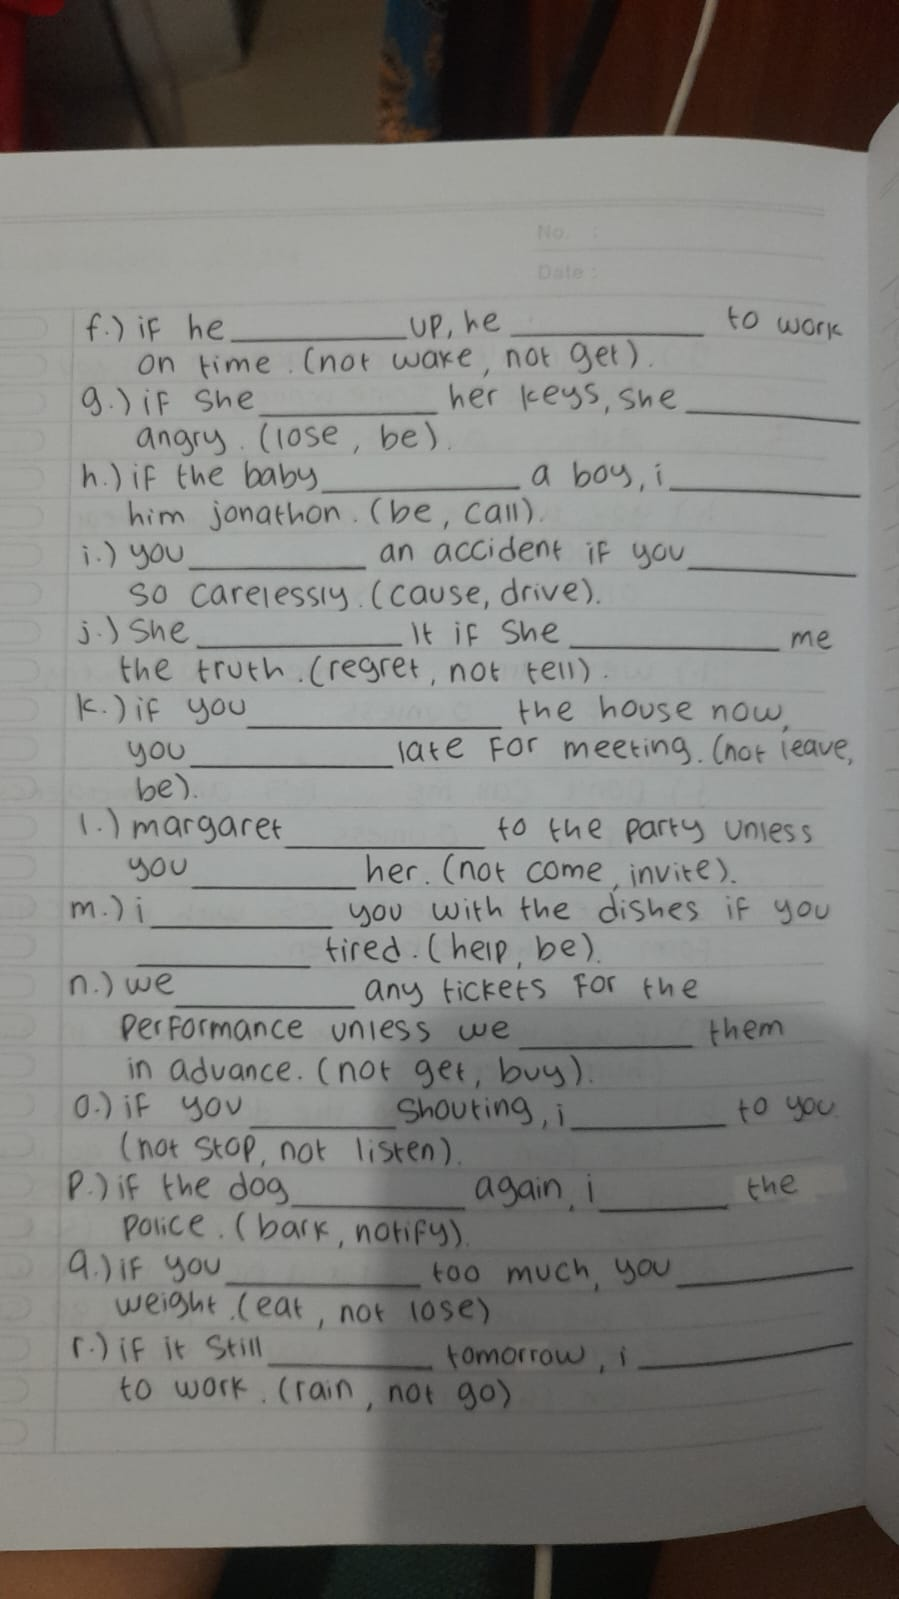 No. :
Date :
f.) if he __________ up, he __________ to work
on time. (not wake, not get).
g.) if she __________ her keys, she __________
angry. (lose, be).
h.) if the baby __________ a boy, i __________
him jonathon. (be, call).
i.) you __________ an accident if you __________
so carelessly. (cause, drive).
j.) She __________ it if she __________ me
the truth. (regret, not tell).
k.) if you __________ the house now,
you __________ late for meeting. (not leave,
be).
l.) margaret __________ to the party unless
you __________ her. (not come, invite).
m.) i __________ you with the dishes if you
__________ tired. (help, be).
n.) we __________ any tickets for the
performance unless we __________ them
in advance. (not get, buy).
o.) if you __________ shouting, i __________ to you.
(not stop, not listen).
p.) if the dog __________ again, i __________ the
police. (bark, notify).
q.) if you __________ too much, you __________
weight. (eat, not lose)
r.) if it still __________ tomorrow, i __________
to work. (rain, not go)